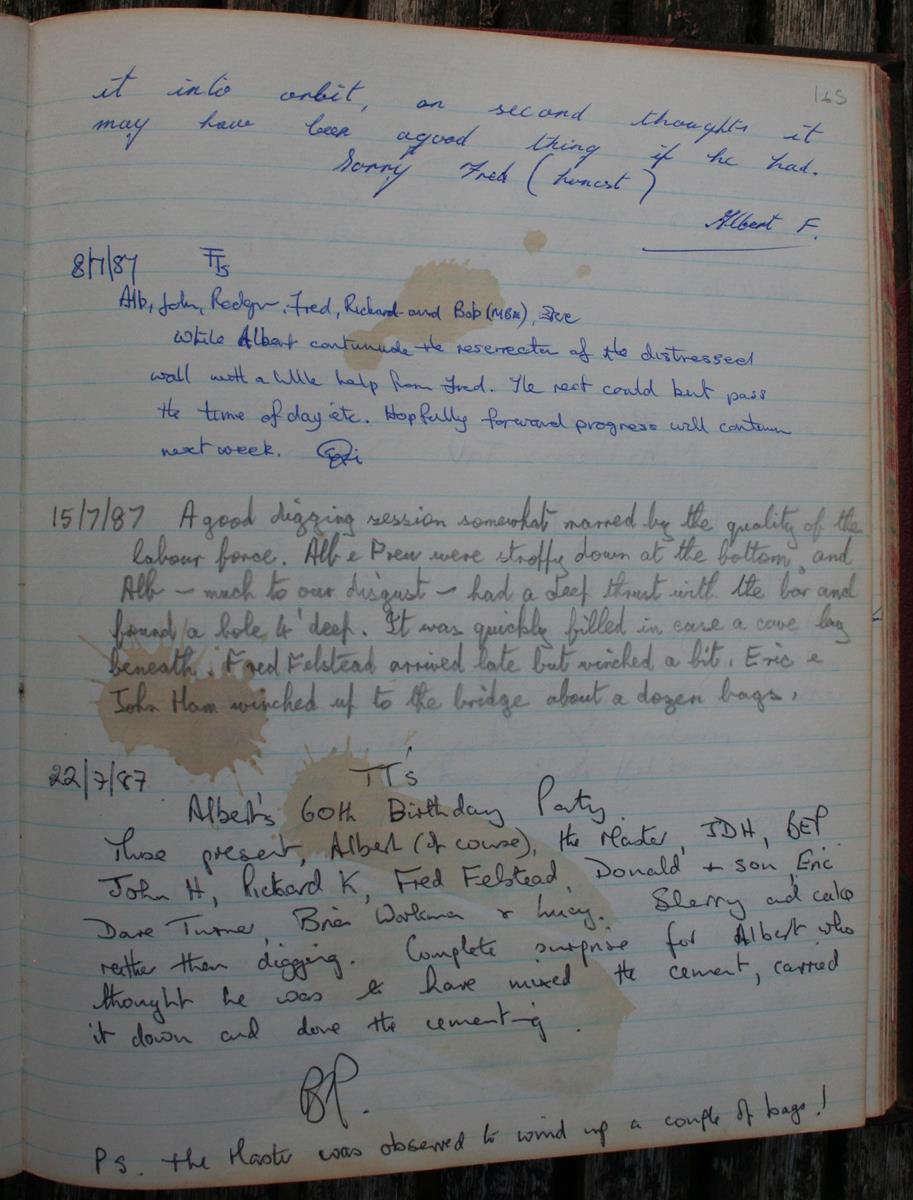 165
it into orbit, on second thoughts it
may have been agood thing if he had.
Sorry Fred (honest)
Albert F.
8/7/87 TTs
Alb, John, Fred, Richard and Bob (MBA),
While Albert contunude the reserrecter of the distressed
wall with a little help from Fred. The rest could but pass
the time of day etc. Hopfully forward progress will contunn
next week.
15/7/87 A good digging session somewhat marred by the quality of the
labour force. Alb & Prew were stroppy down at the bottom, and
Alb – much to our disgust – had a deep thrust with the bar and
found a hole 4' deep. It was quickly filled in case a cave lay
beneath. Fred Felstead arrived late but winched a bit. Eric &
John Ham winched up to the bridge about a dozen bags.
22/7/87 TT's
Albert's 60th Birthday Party
Those present, Albert (of course), the Master, JDH, BEP
John H, Rickard K, Fred Felstead, Donald + son, Eric
Dave Turner, Brian Workman & Lucy. Sherry and cakes
rather than digging. Complete surprise for Albert who
thought he was to have mixed the cement, carried
it down and done the cementing.
BP.
PS. the Master was observed to wind up a couple of bags!